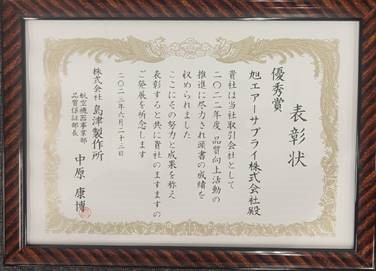 表彰状
優秀賞
旭エアーサプライ株式会社殿
貴社は当社取引会社として
二〇二二年度 品質向上活動の
推進に尽力され頭書の成績を
収められました
ここにその努力と成果を称え
表彰すると共に貴社のますますの
ご発展を祈念します
二〇二三年六月二十三日
株式会社 島津製作所
航空機器事業部
品質保証部長
中原 康博